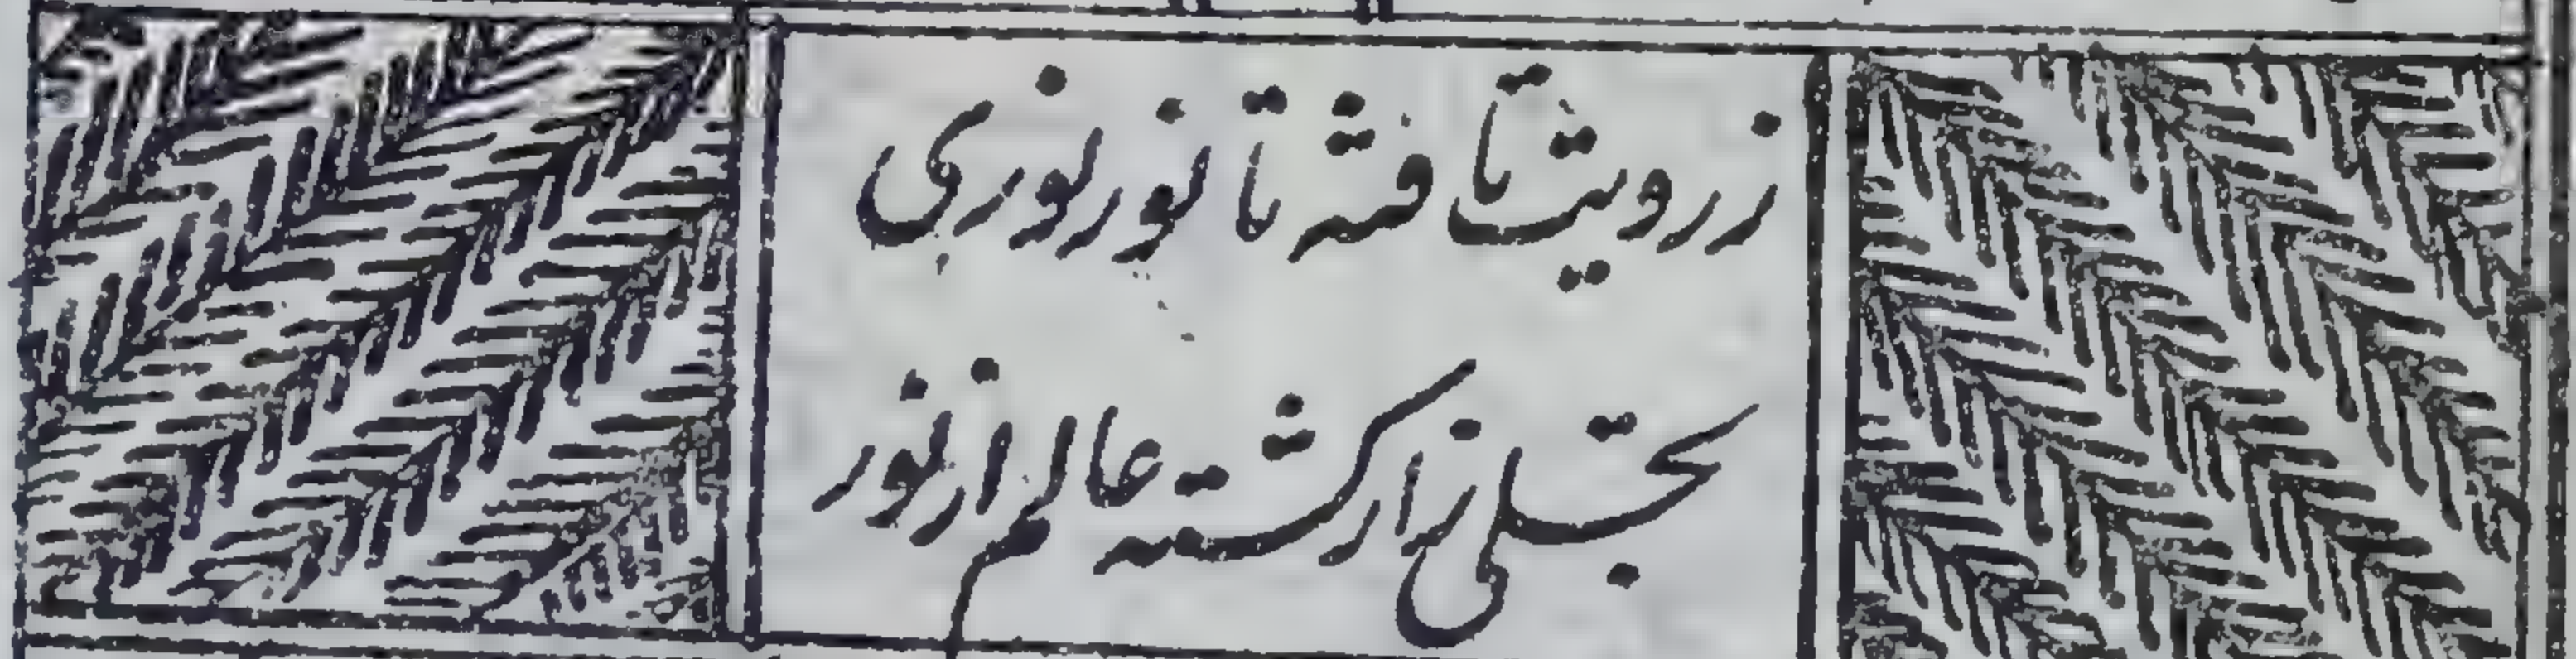 ز رویت تافته تا نور نوری
تجلی زار گشته عالم از نور